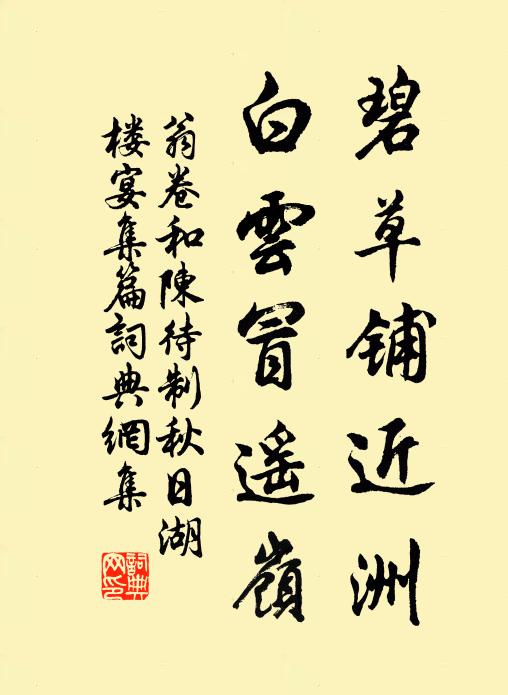 碧草铺近洲
白雲冒遥嶺
翁卷和陳待制秋日湖
楼宴集篇詞典網集
詞典網印